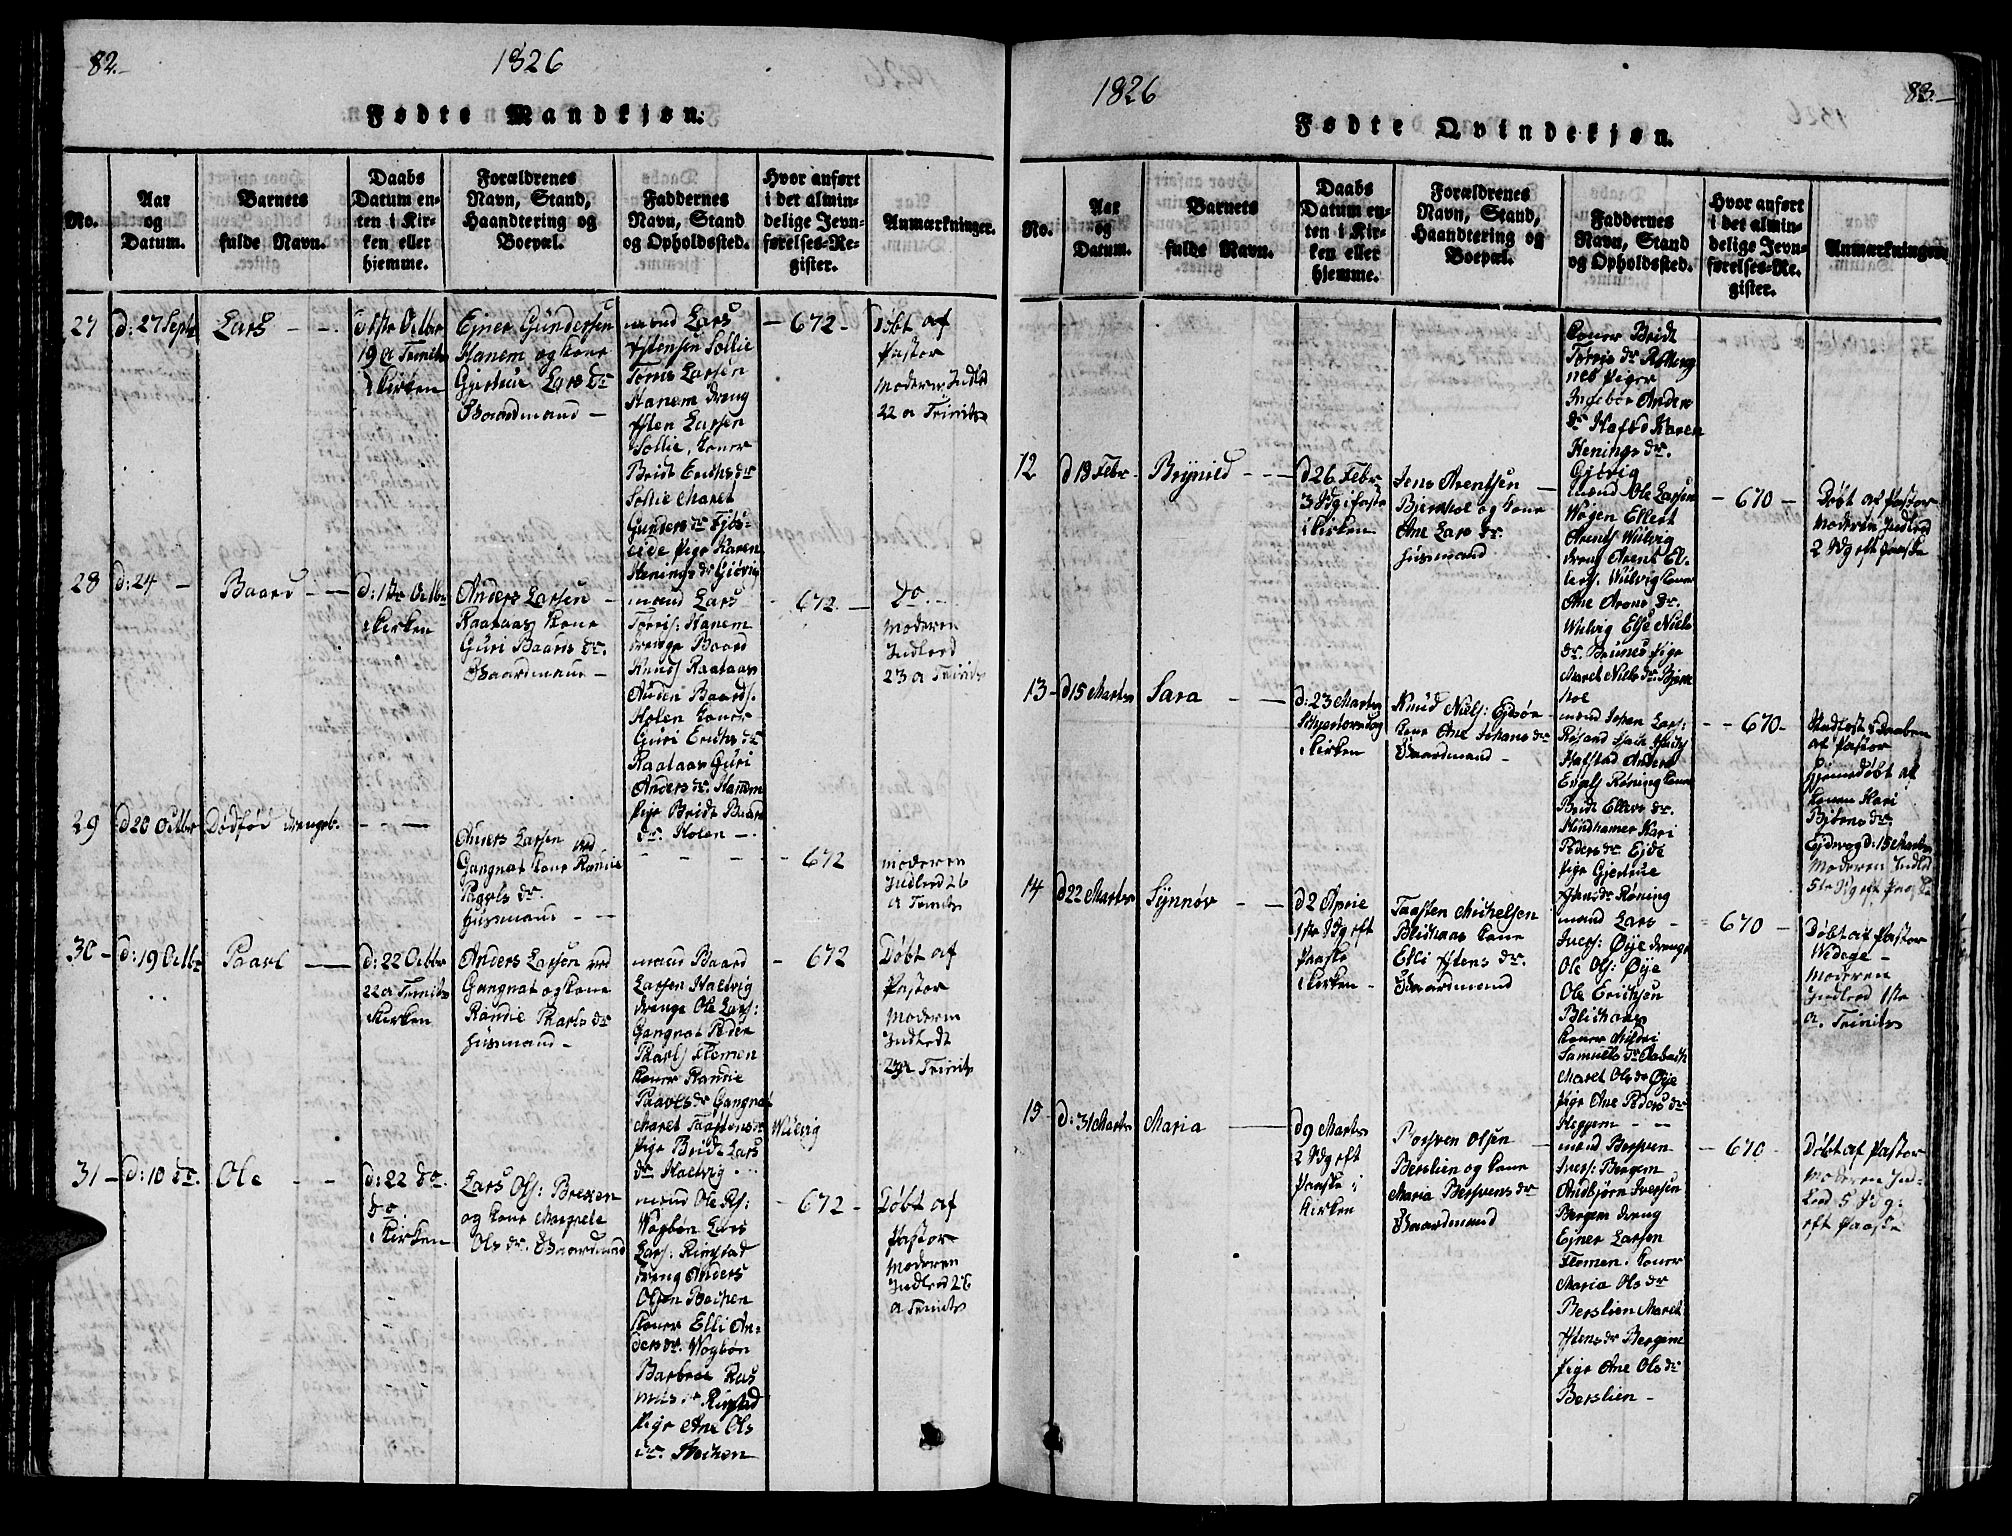 82.
1826
Fødte Mandkjøn.
No.
Aar
og
Datum.
Barnets
fulde Navn.
Daabs
Datum en-
ten i Kir-
ken eller
hjemme.
Forældrenes
Navn, Stand,
Haandtering og
Boepæl.
Faddernes
Navn, Stand
og Opholdssted.
Hvor anført
i det almin-
delige Jevn-
førelses-Re-
gister.
Anmærkninger.
27
d: 27 Septr
Lars
Octbr
19 a Trinit
i Kirken
Ejner Gundersen
Hanem og Kone
Gjertrue Lars dr
Gaardmand
mænd Lars
Ystensen Sollie
Larsen
Hanem dreng
Ysten Larsen
Sollie, Koner
Bridt Erichs dr
Sollie Maret
Gunders dr
eide Pige Karen
Henings dr Giøvig
672
Døbt af
Pastor
Moderen Indled
22 a Trinit
28
d: 24
Baard
d: 1ste Octbr
i Kirken
Anders Larsen
Raaaas Kone
Guri Baards dr
Gaardmand
mænd Lars
Torris: Hanem
drenge Baard
Knuds Raalaas
Auden Baards.
Holen Koner
Guri Erichs dr
Raalaas Guri
Anders dr Hanem
Pige Bridt Baard
dr Holen
672
Do
Moderen
Indled
23 a Trinit
29
d 20 Octbr
Dødfød drengeb.
Anders Larsen ved
Gangnat Kone Randie
Paavels dr
Husmand
672
moderen
Indled 26
a Trinit
30
d: 19 Octbr
Paavl
d: 22 Octbr
22 a Trinit
i Kirken
Anders Larsen ved
Gangnat og Kone
Randie Paavls dr
Husmand
mænd Baard
Larsen Halvig
drenge Ole Lars:
Gangnat Peder
Paavls Flemen
Koner Randie
Paavls dr Gangnat
Maret Taastens dr Wulvig
Pige Bridt Lars
dr Halvig
672
Døbt af
Pastor
Moderen
Indledt
a Trinit
31
d: 10 do.
Ole
d: 22 do
do
i Kirken
Lars Ols: Brekken
og Kone Magrete
Ols dr Gaardmand
mænd Ole
Wagbøn Lars
Lars: Ringstad
dreng Anders
Olsen
Koner Elli An-
ders dr. Wagbøn
Barbroe Ras
mus dr Ringstad
Pige Ane Ols
dr.
672
Døbt af
Pastor
Moderen
Indled 26
a Trinit
1826
83.
Fødte Qvindekjøn.
No.
Aar
og
Datum.
Barnets
fulde Navn.
Daabs
Datum en-
ten i Kir-
ken eller
hjemme.
Forældrenes
Navn, Stand,
Haandtering og
Boepæl.
Faddernes
Navn, Stand
og Opholdssted.
Hvor anført
i det almin-
delige Jevn-
førelses-Re-
gister.
Anmærkninger.
Koner Bridt
Torris dr
nes Piger
Ingebor Anders
dr Hafsd Karen
Henings dr.
Gjøvig
12
d 13 Febr
Brynild
d 26 Febr
3 Sdg i faste
i Kirken
Jens Arentsen
Bjerkhoe og Kone
Ane Lars dr
Husmand
mænd Ole Larsen
Wogen Ellert
Arents Wulvig
dreng Arent El-
lers. Wulvig Koner
Ane Arens dr.
Wulvig Else Niels
dr. Brunes Pige
Maret Niels dr. Bjerk
hoe
670
Døbt af Pastor
Moderen Indled
2 Sdg eft Paaske
13
d 15 Marts
Sara
d: 23 Marts
Skjærtorsdag
i Kirken
Knud Niels: Ejdsøe
Kone Ane Johans dr
Gaardmand
mænd Johan Lars:
Røsand
Hafstad Anders
Engels Røning Koner
Bridt Ellers dr.
Hindhamer Kari
Peders dr Ejde
Pige Gjertrue
dr Røning
670
Stadfæst i Daaben
af Pastor
Hjemedøbt af
Konen Kari
Bjørns dr
d: 15 Marts
Moderen Indled
5te Sdg eft Paaske
14
d 22 Marts
Synnøv
d 2 Aprie
1ste Sdg eft
Paaske
i Kirken
Taasten Michelsen
Blichaas Kone
Elli Ystens dr.
Gaardmand
mænd Lars
Ivers: Øije drenge
Ole Ols: Øije
Ole Erichsen
Blichaas
Koner Mildri
Samuels dr Aasbach
Maret Ols dr Øije
Pige Ane Peders dr
Heggem
670
Døbt af Pastor
Wedege
Moderen
Indled 1ste
a. Trinit
15
d: 31 Marts
Maria
d 9 Marts
2 Sdg eft
Paaske i
Kirken
Bersven Olsen
Berslien og Kone
Maria Bersvens dr
Gaardmand
mænd Bersven
Ivers: Bergem
Andbjørn Iversen
Bergem dreng
Ejner Larsen
Flemen. Koner
Maria Ols dr
Berslien Maret
Ystens dr Bergem
Pige Ane Ols dr
Berslien
670
Døbt af Pastor
Moderen Ind-
led 5 Sdg.
eft Paaske